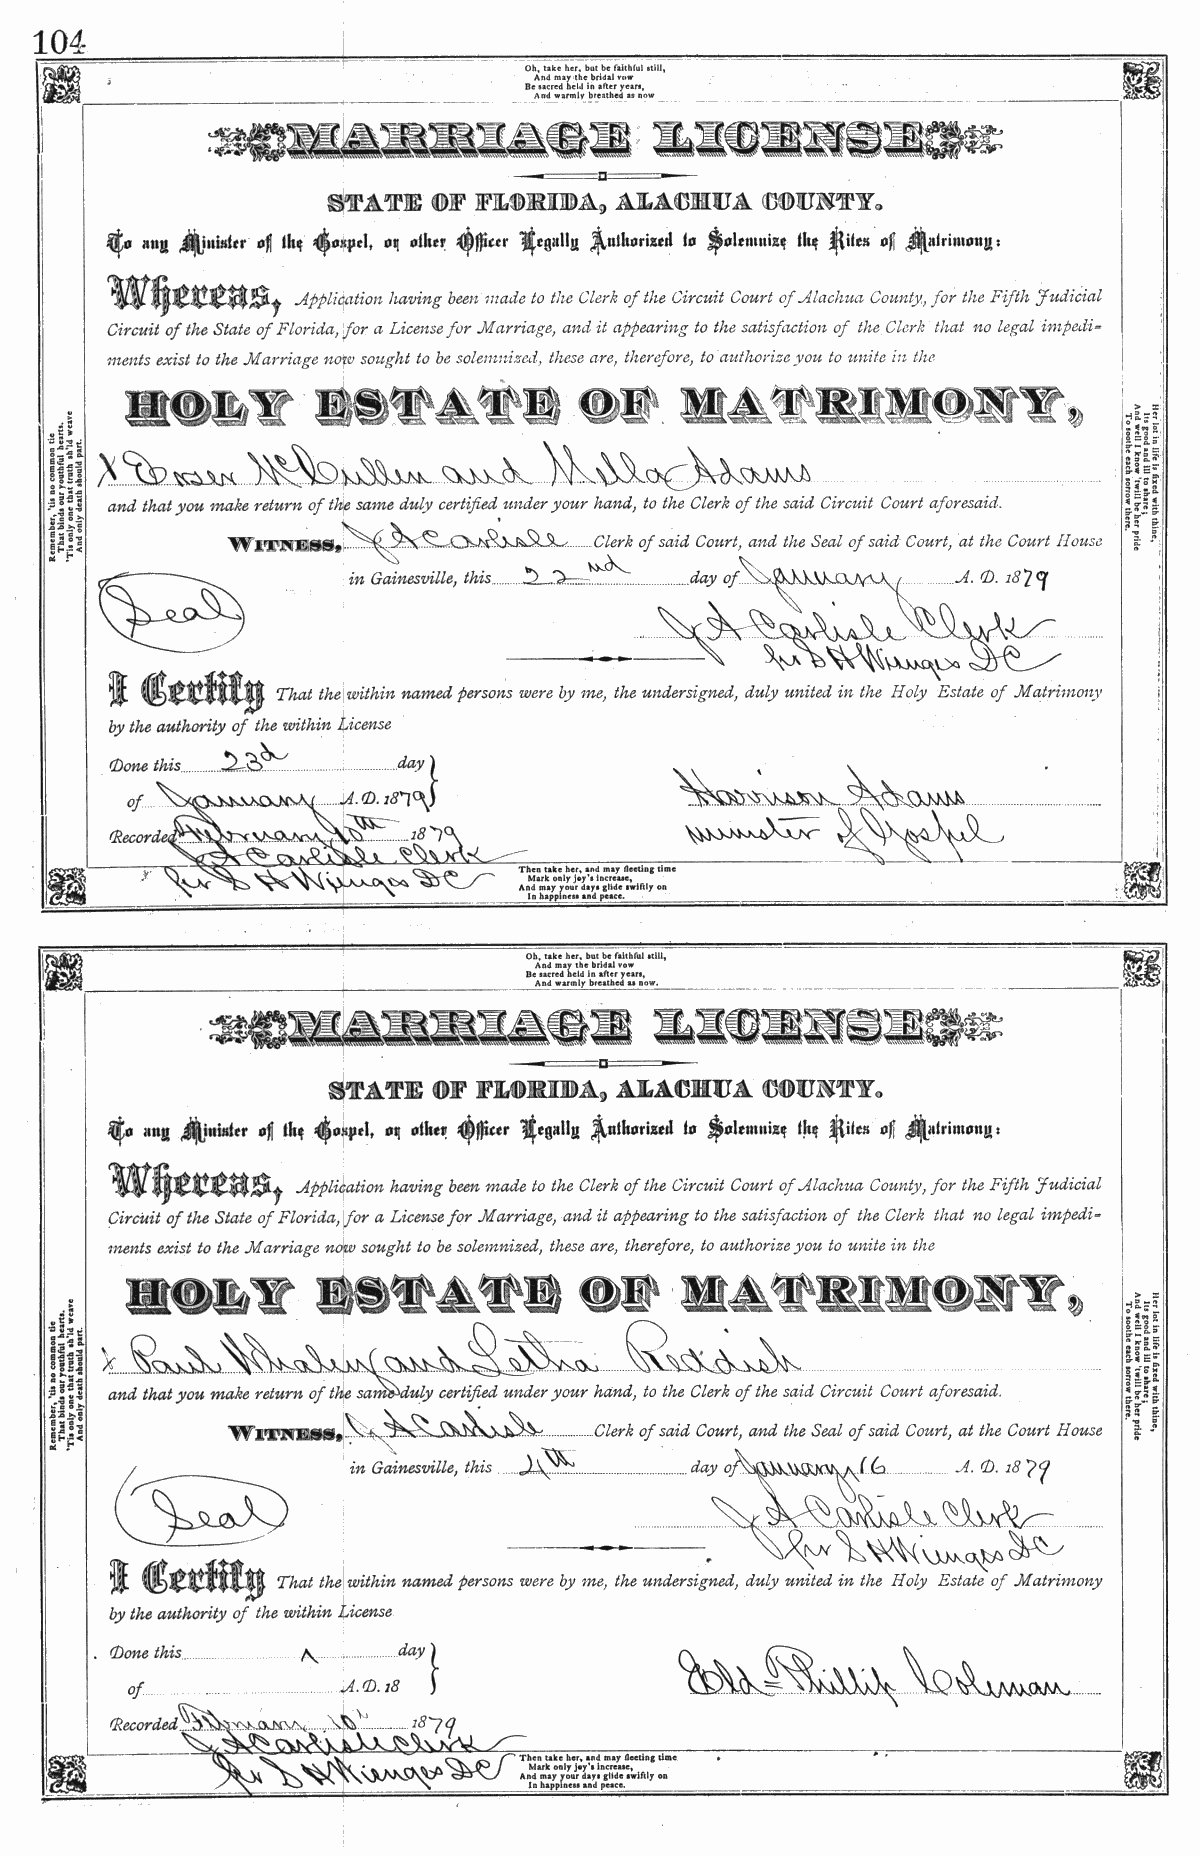 104
Oh, take her, but be faithful still,
And may the bridal vow
Be sacred held in after years,
And warmly breathed as now
MARRIAGE LICENSE
STATE OF FLORIDA, ALACHUA COUNTY.
To any Minister of the Gospel, or other Officer Legally Authorized to Solemnize the Rites of Matrimony:
Whereas, Application having been made to the Clerk of the Circuit Court of Alachua County, for the Fifth Judicial
Circuit of the State of Florida, for a License for Marriage, and it appearing to the satisfaction of the Clerk that no legal impedi-
ments exist to the Marriage now sought to be solemnized, these are, therefore, to authorize you to unite in the
HOLY ESTATE OF MATRIMONY,
McCullen and Adams
and that you make return of the same duly certified under your hand, to the Clerk of the said Circuit Court aforesaid.
WITNESS, J A Carlisle Clerk of said Court, and the Seal of said Court, at the Court House
in Gainesville, this 22nd day of January A. D. 1879
Seal
J A Carlisle Clerk
per S H Wienges DC
I Certify That the within named persons were by me, the undersigned, duly united in the Holy Estate of Matrimony
by the authority of the within License
Done this 23d day
of January A. D. 1879
Harrison Adams
Recorded February 10th 1879
minister of Gospel
J A Carlisle Clerk
per S H Wienges DC
Then take her, and may fleeting time
Mark only joy's increase,
And may your days glide swiftly on
In happiness and peace.
Remember, 'tis no common tie
That binds our youthful hearts.
'Tis only one that truth sh'ld weave
And only death should part.
Her lot in life is fixed with thine,
Its good and ill to share;
And well I know 'twill be her pride
To soothe each sorrow there.
Oh, take her, but be faithful still,
And may the bridal vow
Be sacred held in after years,
And warmly breathed as now.
MARRIAGE LICENSE
STATE OF FLORIDA, ALACHUA COUNTY.
To any Minister of the Gospel, or other Officer Legally Authorized to Solemnize the Rites of Matrimony:
Whereas, Application having been made to the Clerk of the Circuit Court of Alachua County, for the Fifth Judicial
Circuit of the State of Florida, for a License for Marriage, and it appearing to the satisfaction of the Clerk that no legal impedi-
ments exist to the Marriage now sought to be solemnized, these are, therefore, to authorize you to unite in the
HOLY ESTATE OF MATRIMONY,
x Paul Whaley and Letha Reddish
and that you make return of the same duly certified under your hand, to the Clerk of the said Circuit Court aforesaid.
WITNESS, J A Carlisle Clerk of said Court, and the Seal of said Court, at the Court House
in Gainesville, this 4th day of January 16 A. D. 1879
Seal
J A Carlisle Clerk
per S H Wienges DC
I Certify That the within named persons were by me, the undersigned, duly united in the Holy Estate of Matrimony
by the authority of the within License
Done this ^ day
of A. D. 18
Eld= Phillip Coleman
Recorded February 10th 1879
J A Carlisle Clerk
per S H Wienges DC
Then take her, and may fleeting time
Mark only joy's increase,
And may your days glide swiftly on
In happiness and peace.
Remember, 'tis no common tie
That binds our youthful hearts.
'Tis only one that truth sh'ld weave
And only death should part.
Her lot in life is fixed with thine,
Its good and ill to share;
And well I know 'twill be her pride
To soothe each sorrow there.